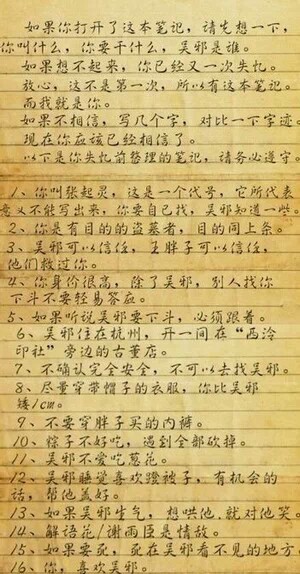 如果你打开了这本笔记，请先想一下，
你叫什么，你要干什么，吴邪是谁。
如果想不起来，你已经又一次失忆。
放心，这不是第一次，所以有这本笔记。
而我就是你。
如果不相信，写几个字，对比一下字迹。
现在你应该已经相信了。
以下是你失忆前整理的笔记，请务必遵守。
1、你叫张起灵，这是一个代号，它所代表
意义不能写出来，你要自己找，吴邪知道一些。
2、你是有目的的盗墓者，目的同上条。
3、吴邪可以信任，王胖子可以信任，
他们救过你。
4、你身价很高，除了吴邪，别人找你
下斗不要轻易答应。
5、如果听说吴邪要下斗，必须跟着。
6、吴邪住在杭州，开一间在“西泠
印社”旁边的古董店。
7、不确认完全安全，不可以去找吴邪。
8、尽量穿带帽子的衣服，你比吴邪
矮1cm。
9、不要穿胖子买的内裤。
10、粽子不好吃，遇到全部砍掉。
11、吴邪不爱吃葱花。
12、吴邪睡觉喜欢蹬被子，有机会的
话，帮他盖好。
13、如果吴邪生气，想哄他，就对他笑。
14、解语花/谢雨臣是情敌。
15、如果要死，死在吴邪看不见的地方
16、你，喜欢吴邪。